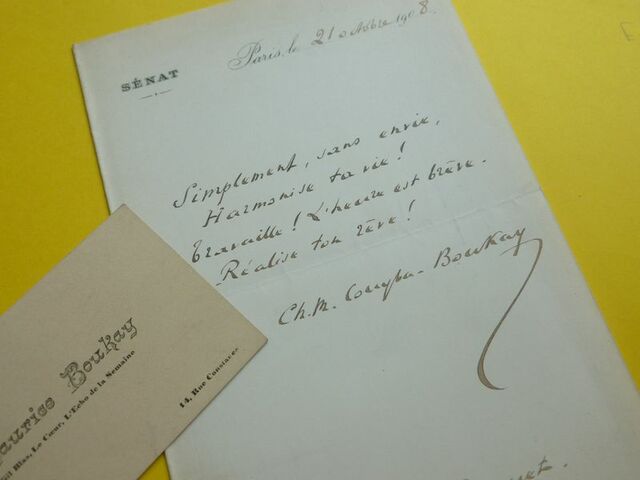 SÉNAT
Paris, le 21 octobre 1908.
Simplement, sans envie,
Harmonise ta vie !
Travaille ! L'heure est brève.
Réalise ton rêve !
Ch. M. Couyba-Boukay
Maurice Boukay
Gil Blas, Le Cœur, L'Echo de la Semaine
14, Rue Constance